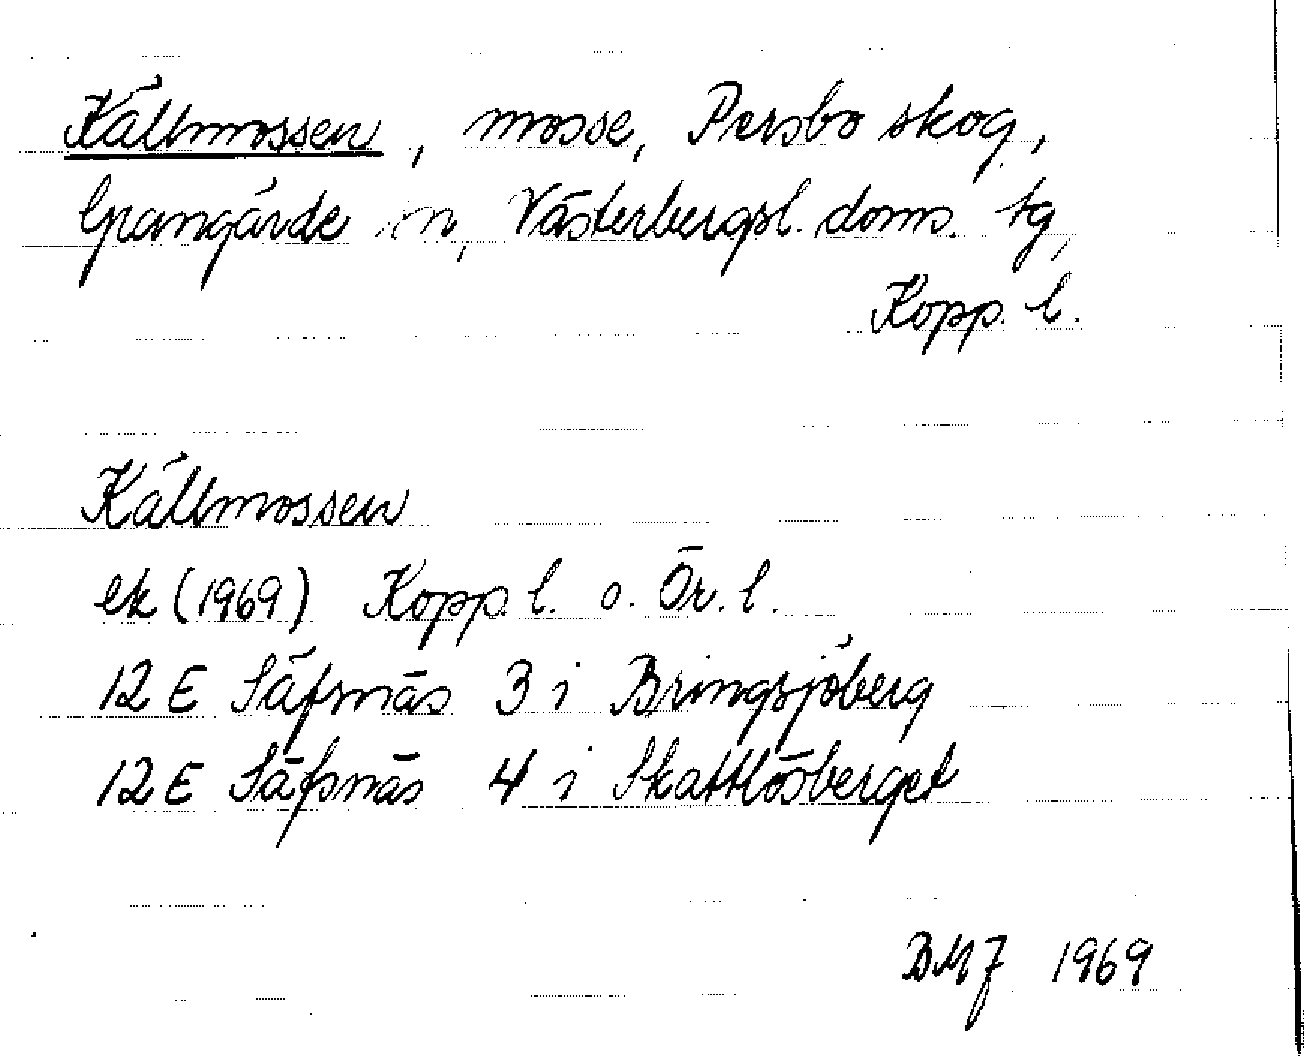 Källmossen, mosse, Persbo skog,
Grangärde sn, Västerbergsl. doms. tg,
Kopp. l.
Källmossen
ek (1969) Kopp. l. o. Ör. l.
12 E Säfsnäs 3 i Bringsjöberg
12 E Säfsnäs 4 i Skattlösberget
BMJ 1969